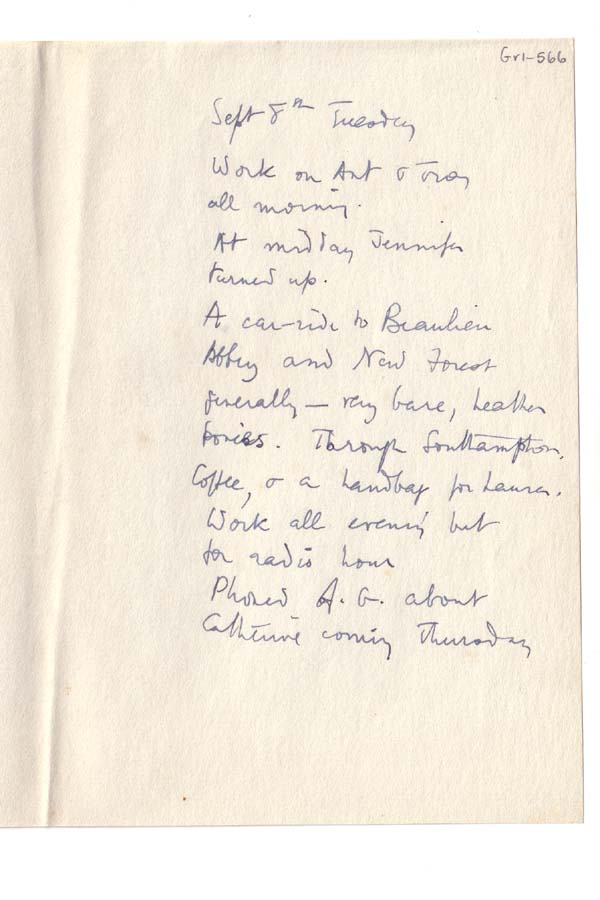 Gr1-566
Sept 8th Tuesday
Work on Ant &
all morning.
At midday Jennifer
turned up.
A car-ride to Beaulieu
Abbey and New Forest
generally — very bare, heather
ponies. Through Southampton.
Coffee, & a handbag for Laura.
Work all evening but
for radio hour
Phoned A. G. about
Catherine coming Thursday